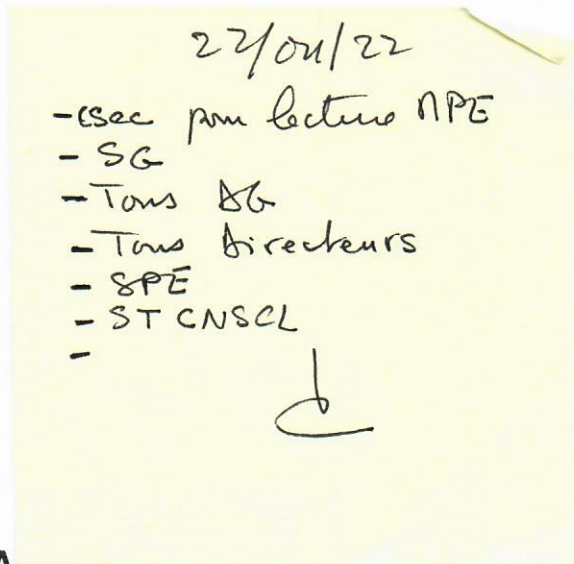 22/04/22
- csec pour lecture MPE
- SG
- Tous DG
- Tous Directeurs
- SPE
- ST CNSCL
-